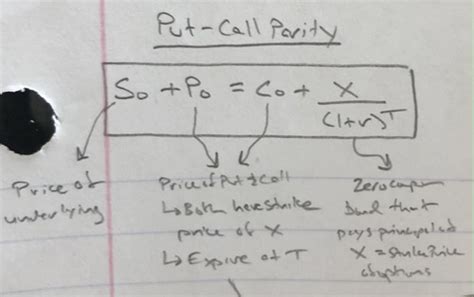 Put-Call Parity
S₀ + P₀ = C₀ + X / (1+r)ᵀ
Price of
underlying
Price of Put & Call
↳ Both have strike
price of X
↳ Expire at T
Zero coupon
bond that
pays principal of
X = Strike Price
of options